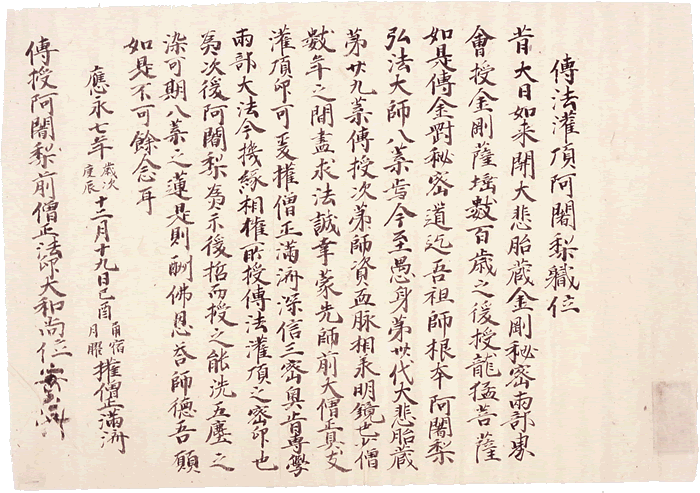 傳法灌頂阿闍梨職位
昔大日如来開大悲胎蔵金剛秘密両部界
會授金剛薩埵数百歳之後授龍猛菩薩
如是傳金剛秘密道迄吾祖師根本阿闍梨
弘法大師八葉焉今至愚身第卅代大悲胎蔵
第廿九葉傳授次第師資血脉相承明鏡也爰僧
数年之間盡求法誠幸蒙先師前大僧正
灌頂印可爰權僧正満済深信三密奥旨専學
両部大法今機縁相催所授傳法灌頂之密印也
為次後阿闍梨為示後招而授之能洗五塵之
染可期八葉之蓮是則酬佛恩荅師徳吾願
如是不可餘念耳
應永七年歳次庚辰十二月十九日己酉角宿月曜權僧正満済
傳授阿闍梨前僧正法印大和尚位